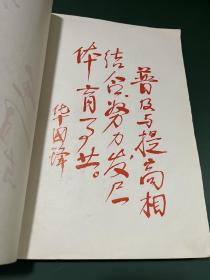 普及与提高相
结合，努力发展
体育事业。
华国锋